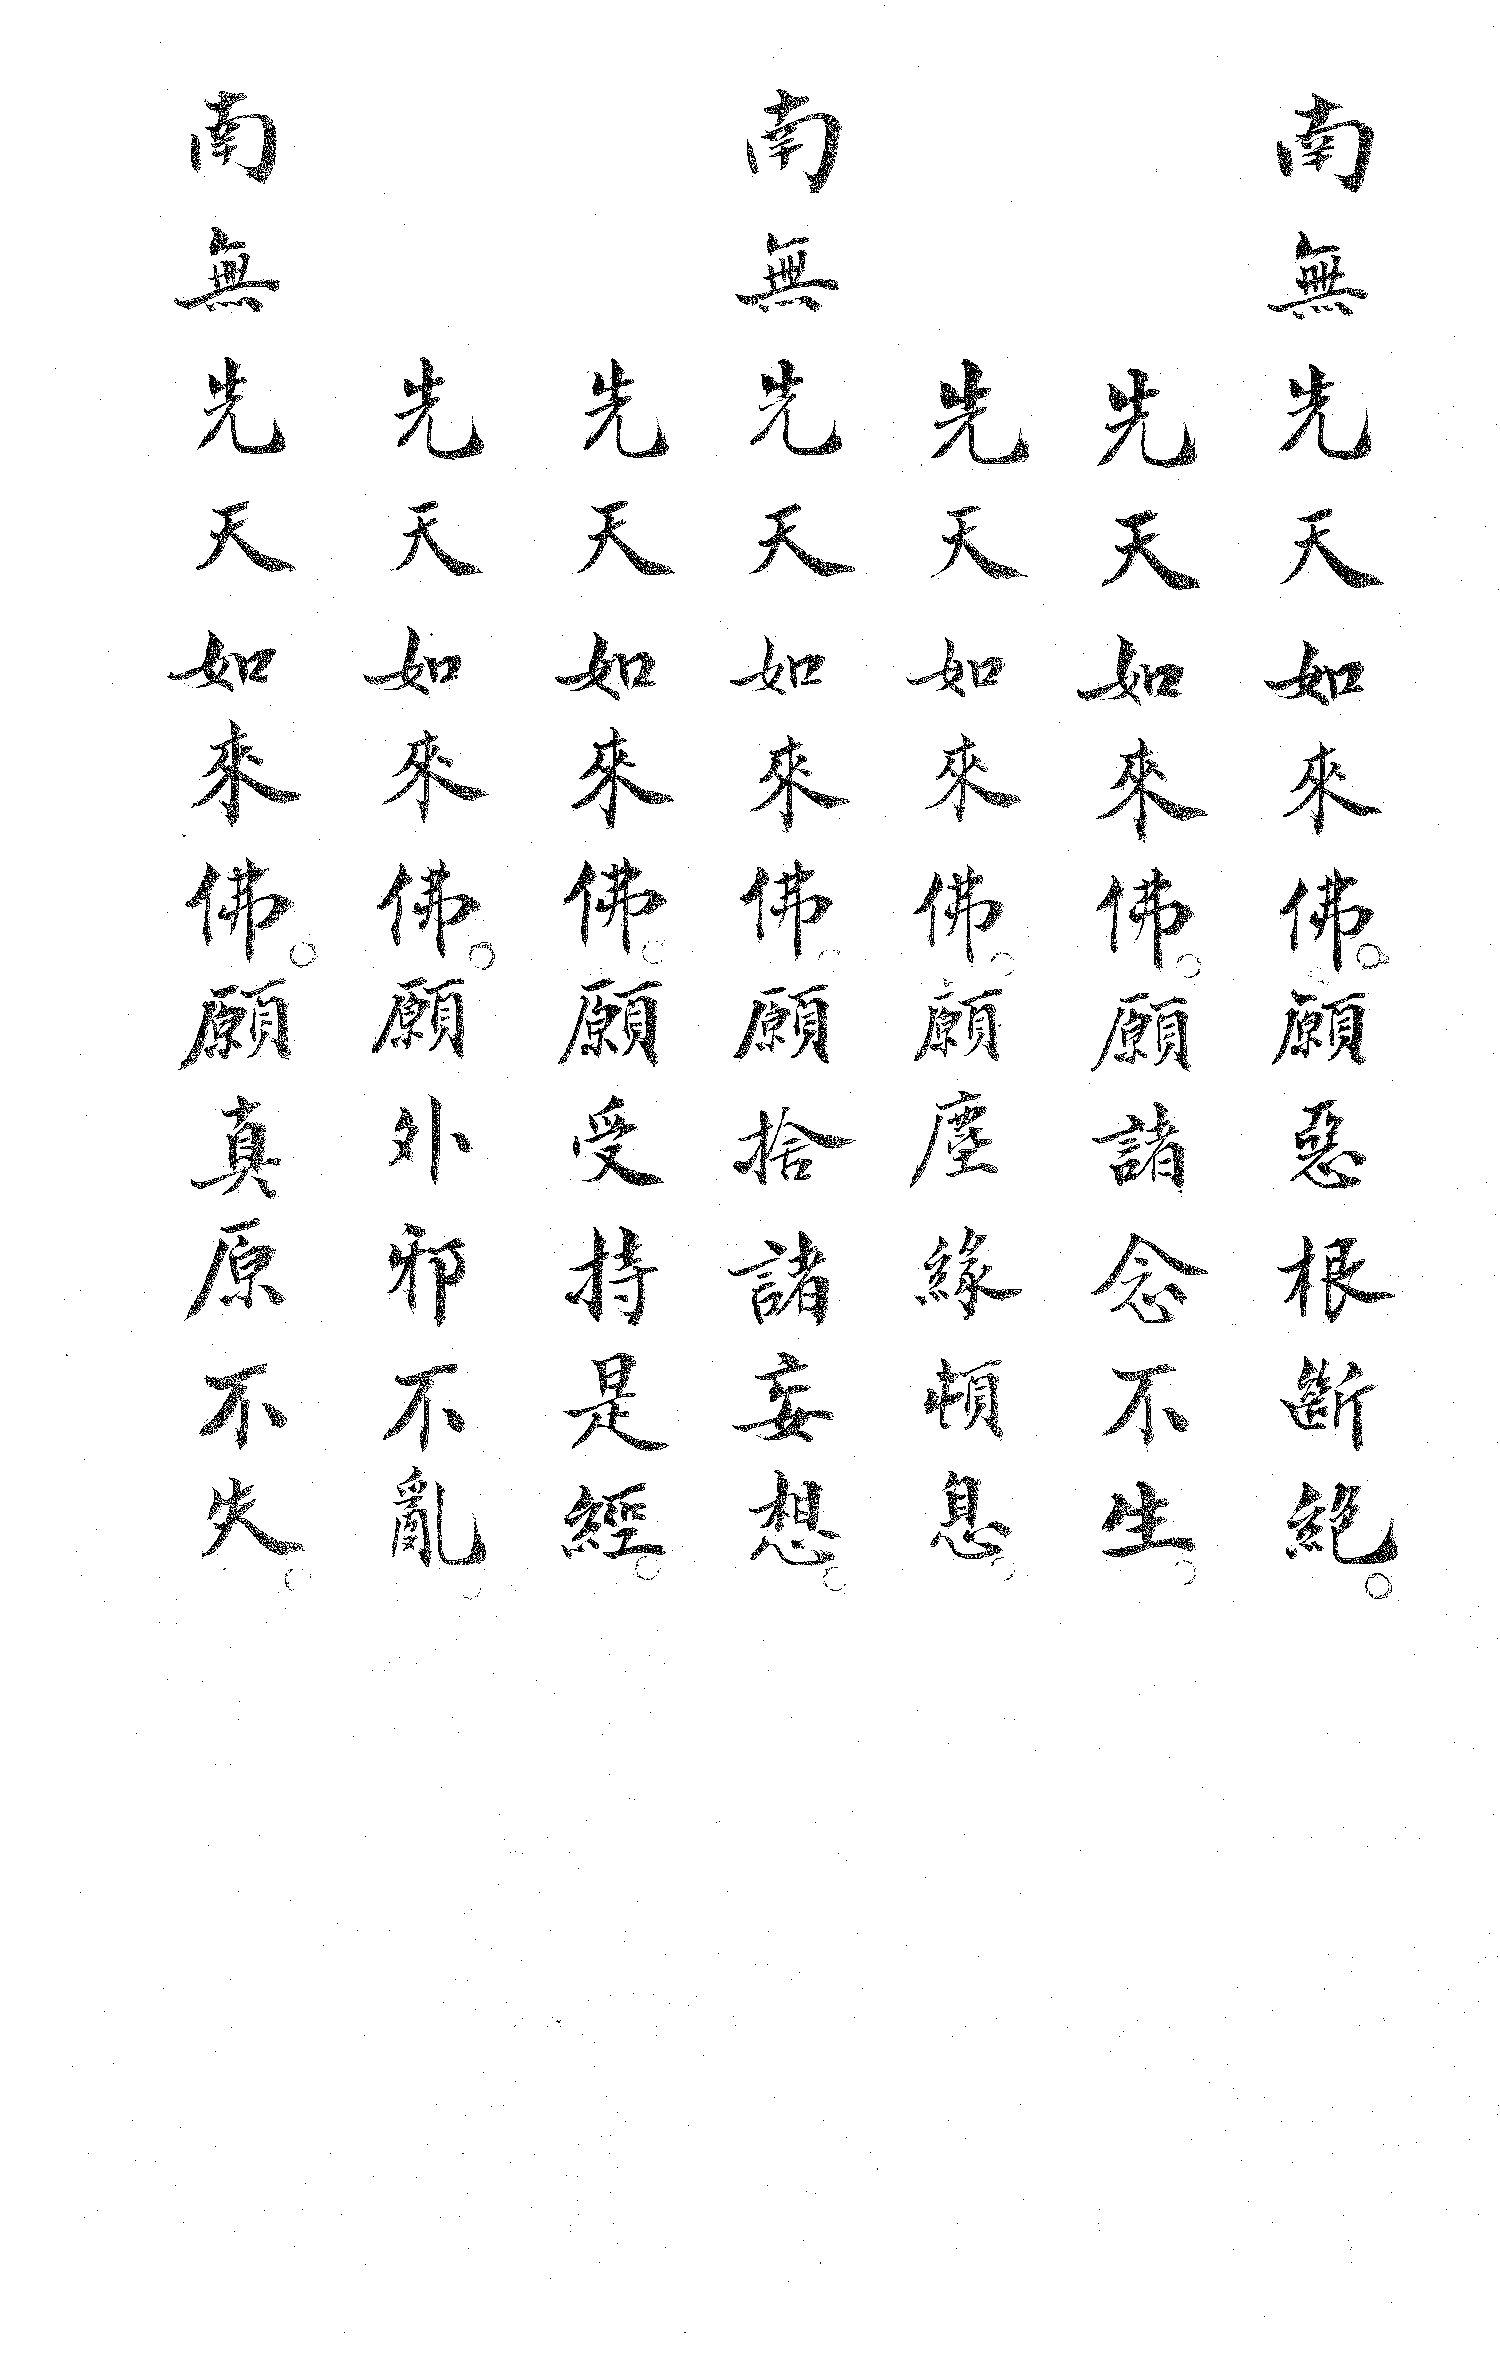 南無先天如來佛。願惡根斷絕。
先天如來佛。願諸念不生。
先天如來佛。願塵緣頓息。
南無先天如來佛。願捨諸妄想。
先天如來佛。願受持是經。
先天如來佛。願外邪不亂。
南無先天如來佛。願真原不失。